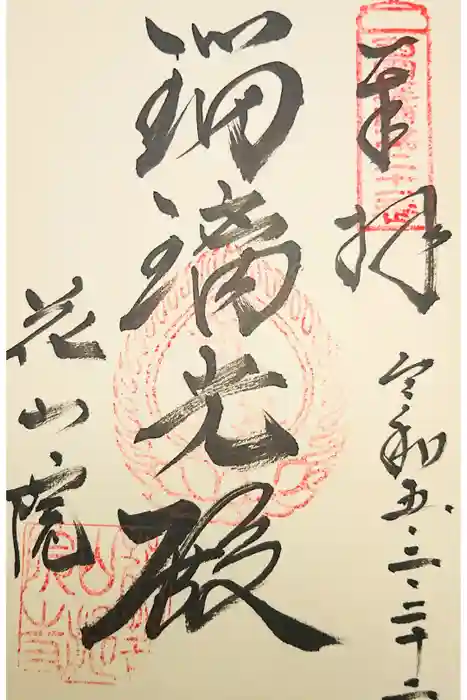 奉拝
令和五・三・二十二
瑠璃光殿
花山院